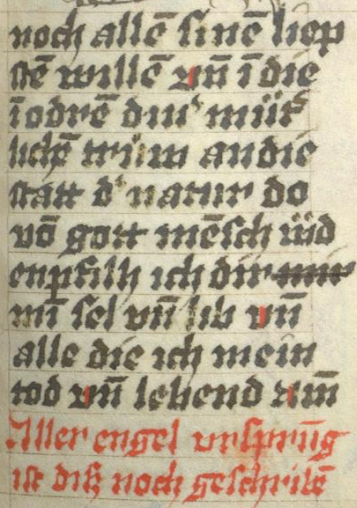 noch allē sinē liep
stē willē vn̄ ī die
lichē trüw an die
statt dˀ natur do
vō gott mēsch
enpfilh ich dir mir
mī sel vn̄ lib vn̄
alle die ich mein
tod vn̄ lebend am̄
Aller engel vrsprūg
ist diß noch geschribē